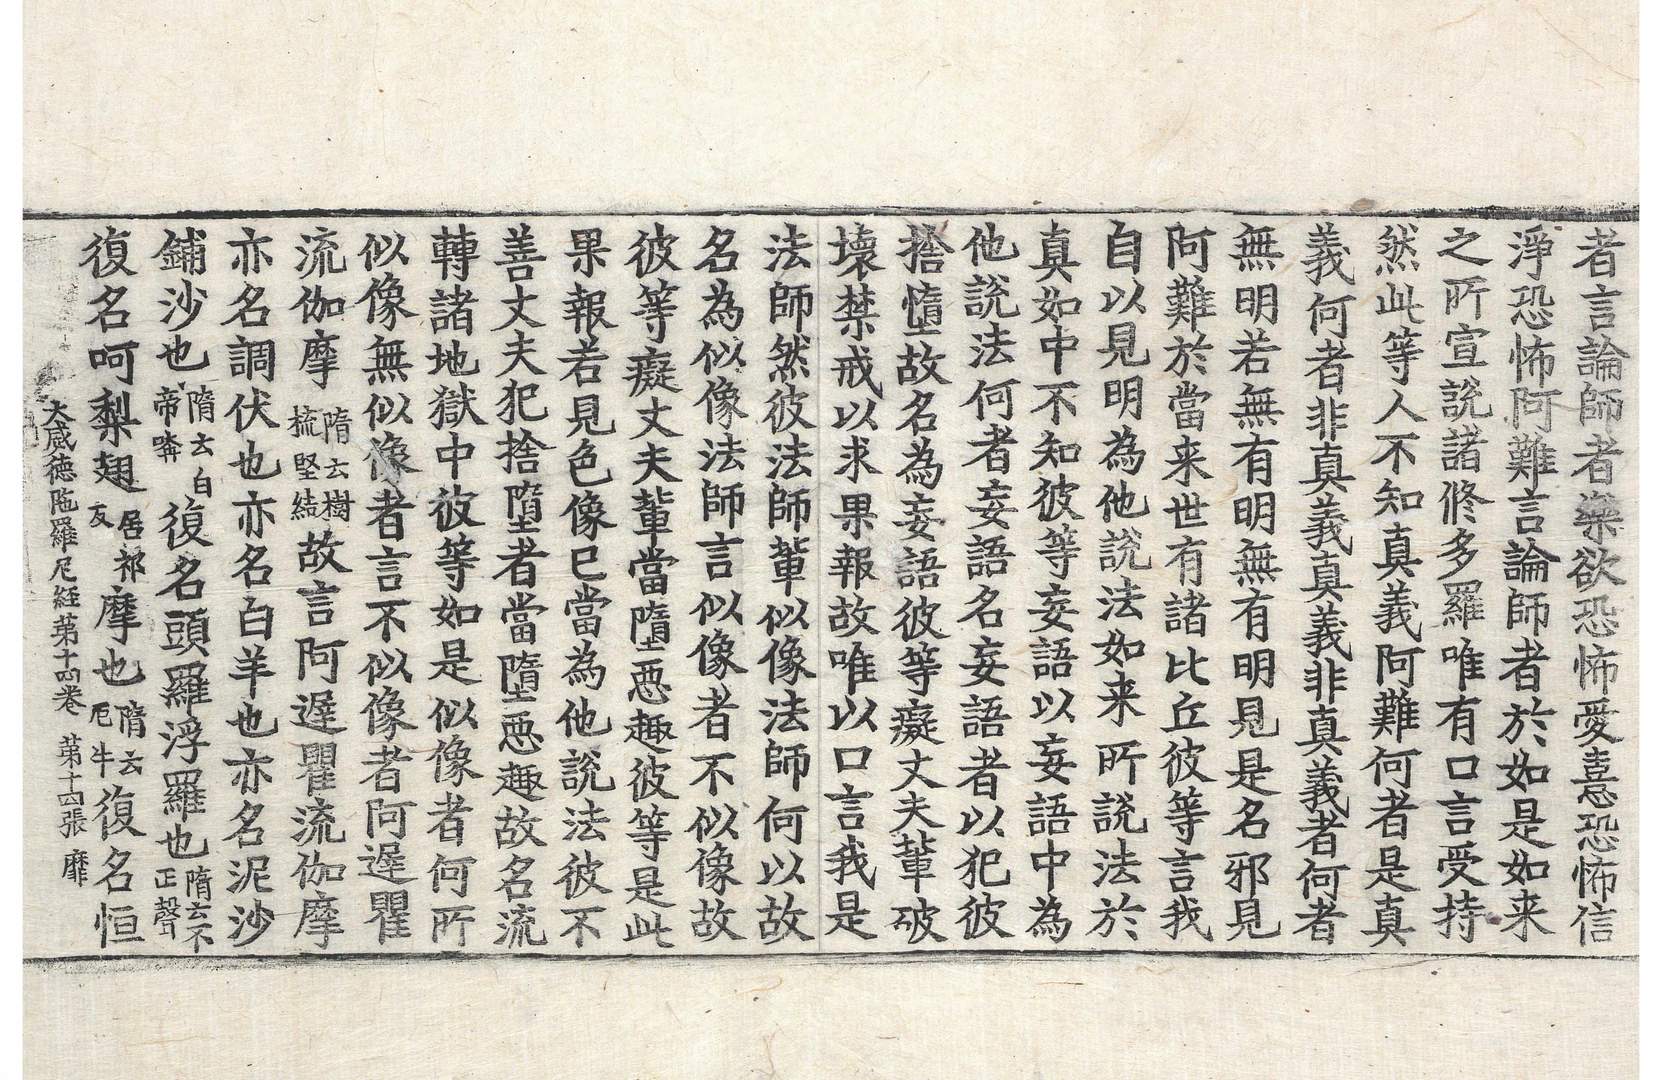 者言論師者樂欲恐怖愛憙恐怖信
淨恐怖阿難言論師者於如是如来
之所宣說諸修多羅唯有口言受持
然此等人不知真義阿難何者是真
義何者非真義真義非真義者何者
無明若無有明無有明見是名邪見
阿難於當来世有諸比丘彼等言我
自以見明為他說法如来所說法於
真如中不知彼等妄語以妄語中為
他說法何者妄語名妄語者以犯彼
捨墮故名為妄語彼等癡丈夫輩破
壞禁戒以求果報故唯以口言我是
法師然彼法師輩似像法師何以故
名為似像法師言似像者不似像故
彼等癡丈夫輩當墮惡趣彼等是此
果報若見色像已當為他說法彼不
善丈夫犯捨墮者當墮惡趣故名流
轉諸地獄中彼等如是似像者何所
似像無似像者言不似像者阿遲瞿
流伽摩隋云樹梳堅結故言阿遲瞿流伽摩
亦名調伏也亦名白羊也亦名泥沙
鋪沙也隋云白帝𠺕復名頭羅浮羅也隋云不正聲
復名呵梨翅居祁反摩也隋云㸸牛復名恒
大威德陁羅尼經苐十四卷　苐十四張　靡